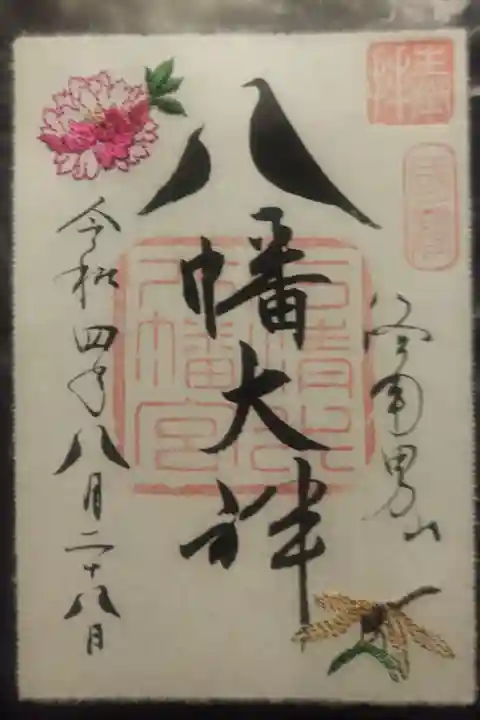 男山
八幡大神
石清水
八幡宮
令和四年八月二十八日